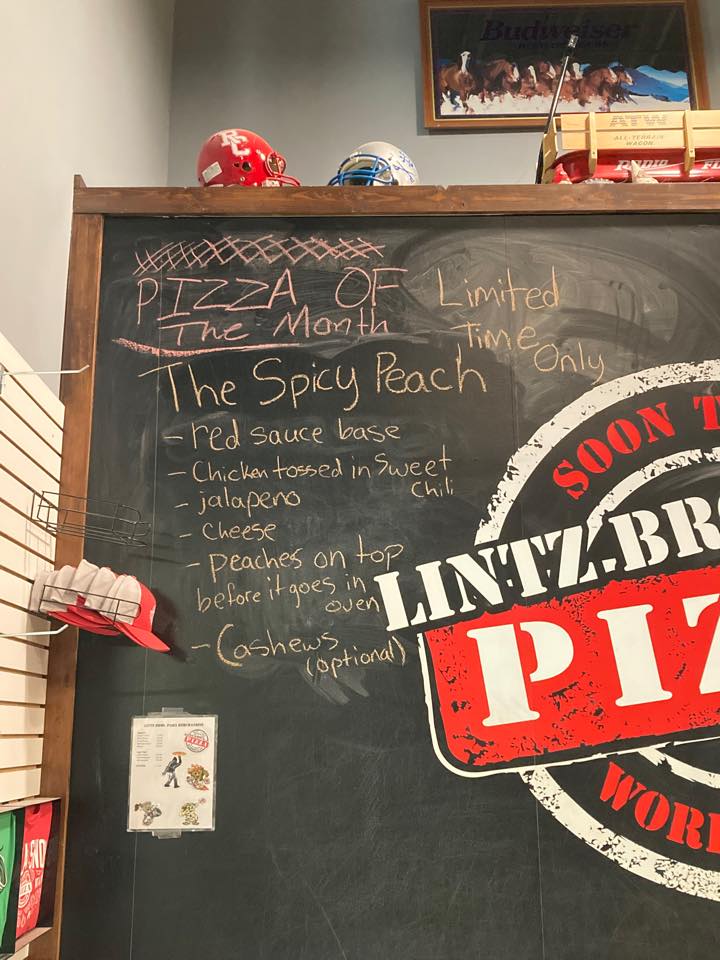 Budweiser
RC
ATW
ALL-TERRAIN
WAGON
RADIO FL
PIZZA OF
The Month
Limited
Time
Only
The Spicy Peach
- red sauce base
- Chicken tossed in Sweet
Chili
- jalapeno
- Cheese
- peaches on top
before it goes in
oven
- Cashews
(optional)
SOON T
LINTZ.BRO
PIZ
WORL
LINTZ BROS. PIZZA MERCHANDISE
PIZZA